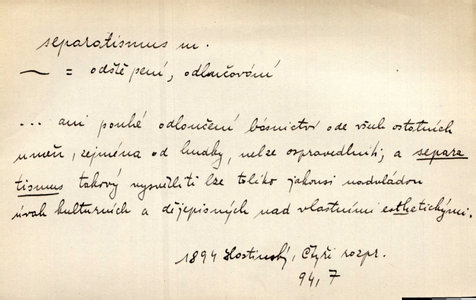 separatismus m.
— = odštěpení, odlučování
... ani pouhé odloučení básnictví ode všech ostatních
umění, zejména od hudby, nelze ospravedlniti; a separa
tismus takový vysvětliti lze toliko jakousi nadvládou
úvah kulturních a dějepisných nad vlastními esthetickými.
1894 Hostinský, Čtyři rozpr.
94, 7